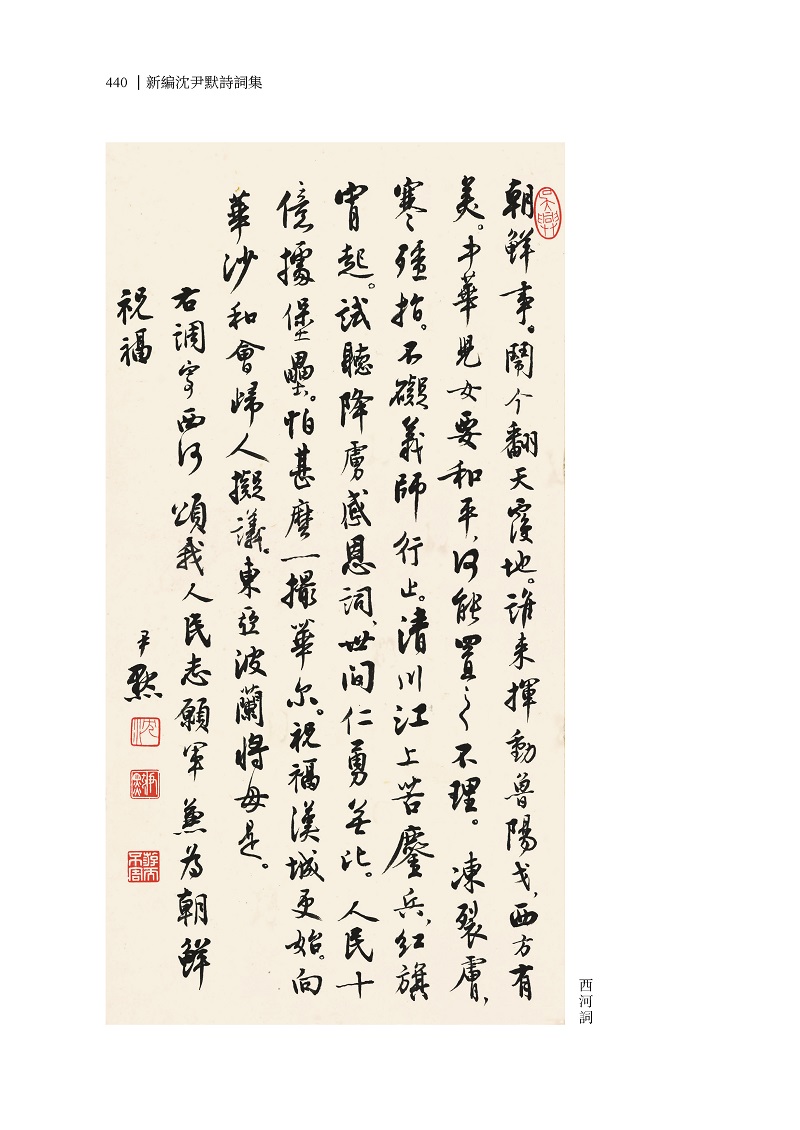 440 | 新編沈尹默詩詞集
朝鮮事。鬧个翻天覆地。誰来揮動魯陽戈、西方有
美。中華児女要和平、何能置之不理。 凍裂膚、
寒殭指。不礙義師行止。清川江上苦鏖兵、紅旗
宵起。試聽降虜感恩詞、世间仁勇無比。 人民十
億擋堡壘。怕甚麽一撮華尔。祝福漢城更始。向
華沙和會歸人擬議。東亞波蘭將毋是。
右調寄西河 頌我人民志願軍 兼為朝鮮
祝福
尹默
西河詞